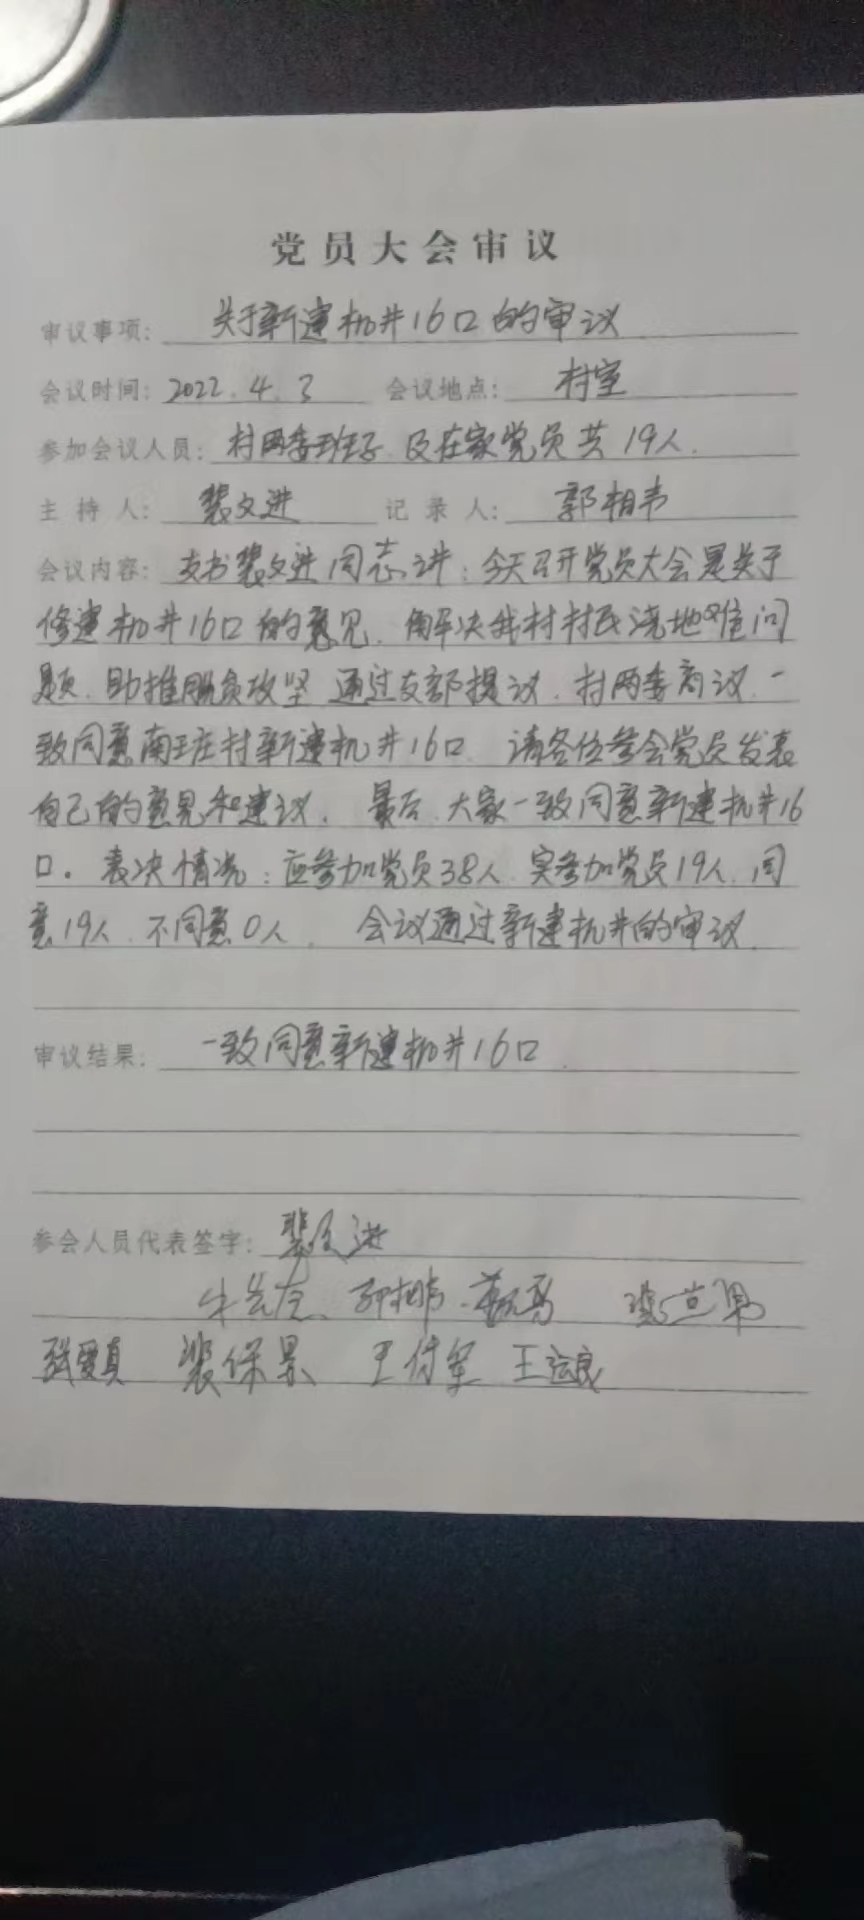 党员大会审议
审议事项: 关于新建机井16口的审议
会议时间: 2022.4.3 会议地点: 村室
参加会议人员: 村两委班子及在家党员共19人.
主持人: 裴文进 记录人: 郭相韦
会议内容: 支书裴文进同志讲:今天召开党员大会是关于
修建机井16口的意见.解决我村村民浇地难问
题.助推脱贫攻坚 通过支部提议.村两委商议.一
致同意南王庄村新建机井16口 请各位参会党员发表
自己的意见和建议. 最后.大家一致同意新建机井16
口.表决情况:应参加党员38人.实参加党员19人.同
意19人.不同意0人. 会议通过新建机井的审议.
审议结果: 一致同意新建机井16口.
参会人员代表签字: 裴文进
郭相韦
张爱真 裴保景 王付军 王运良